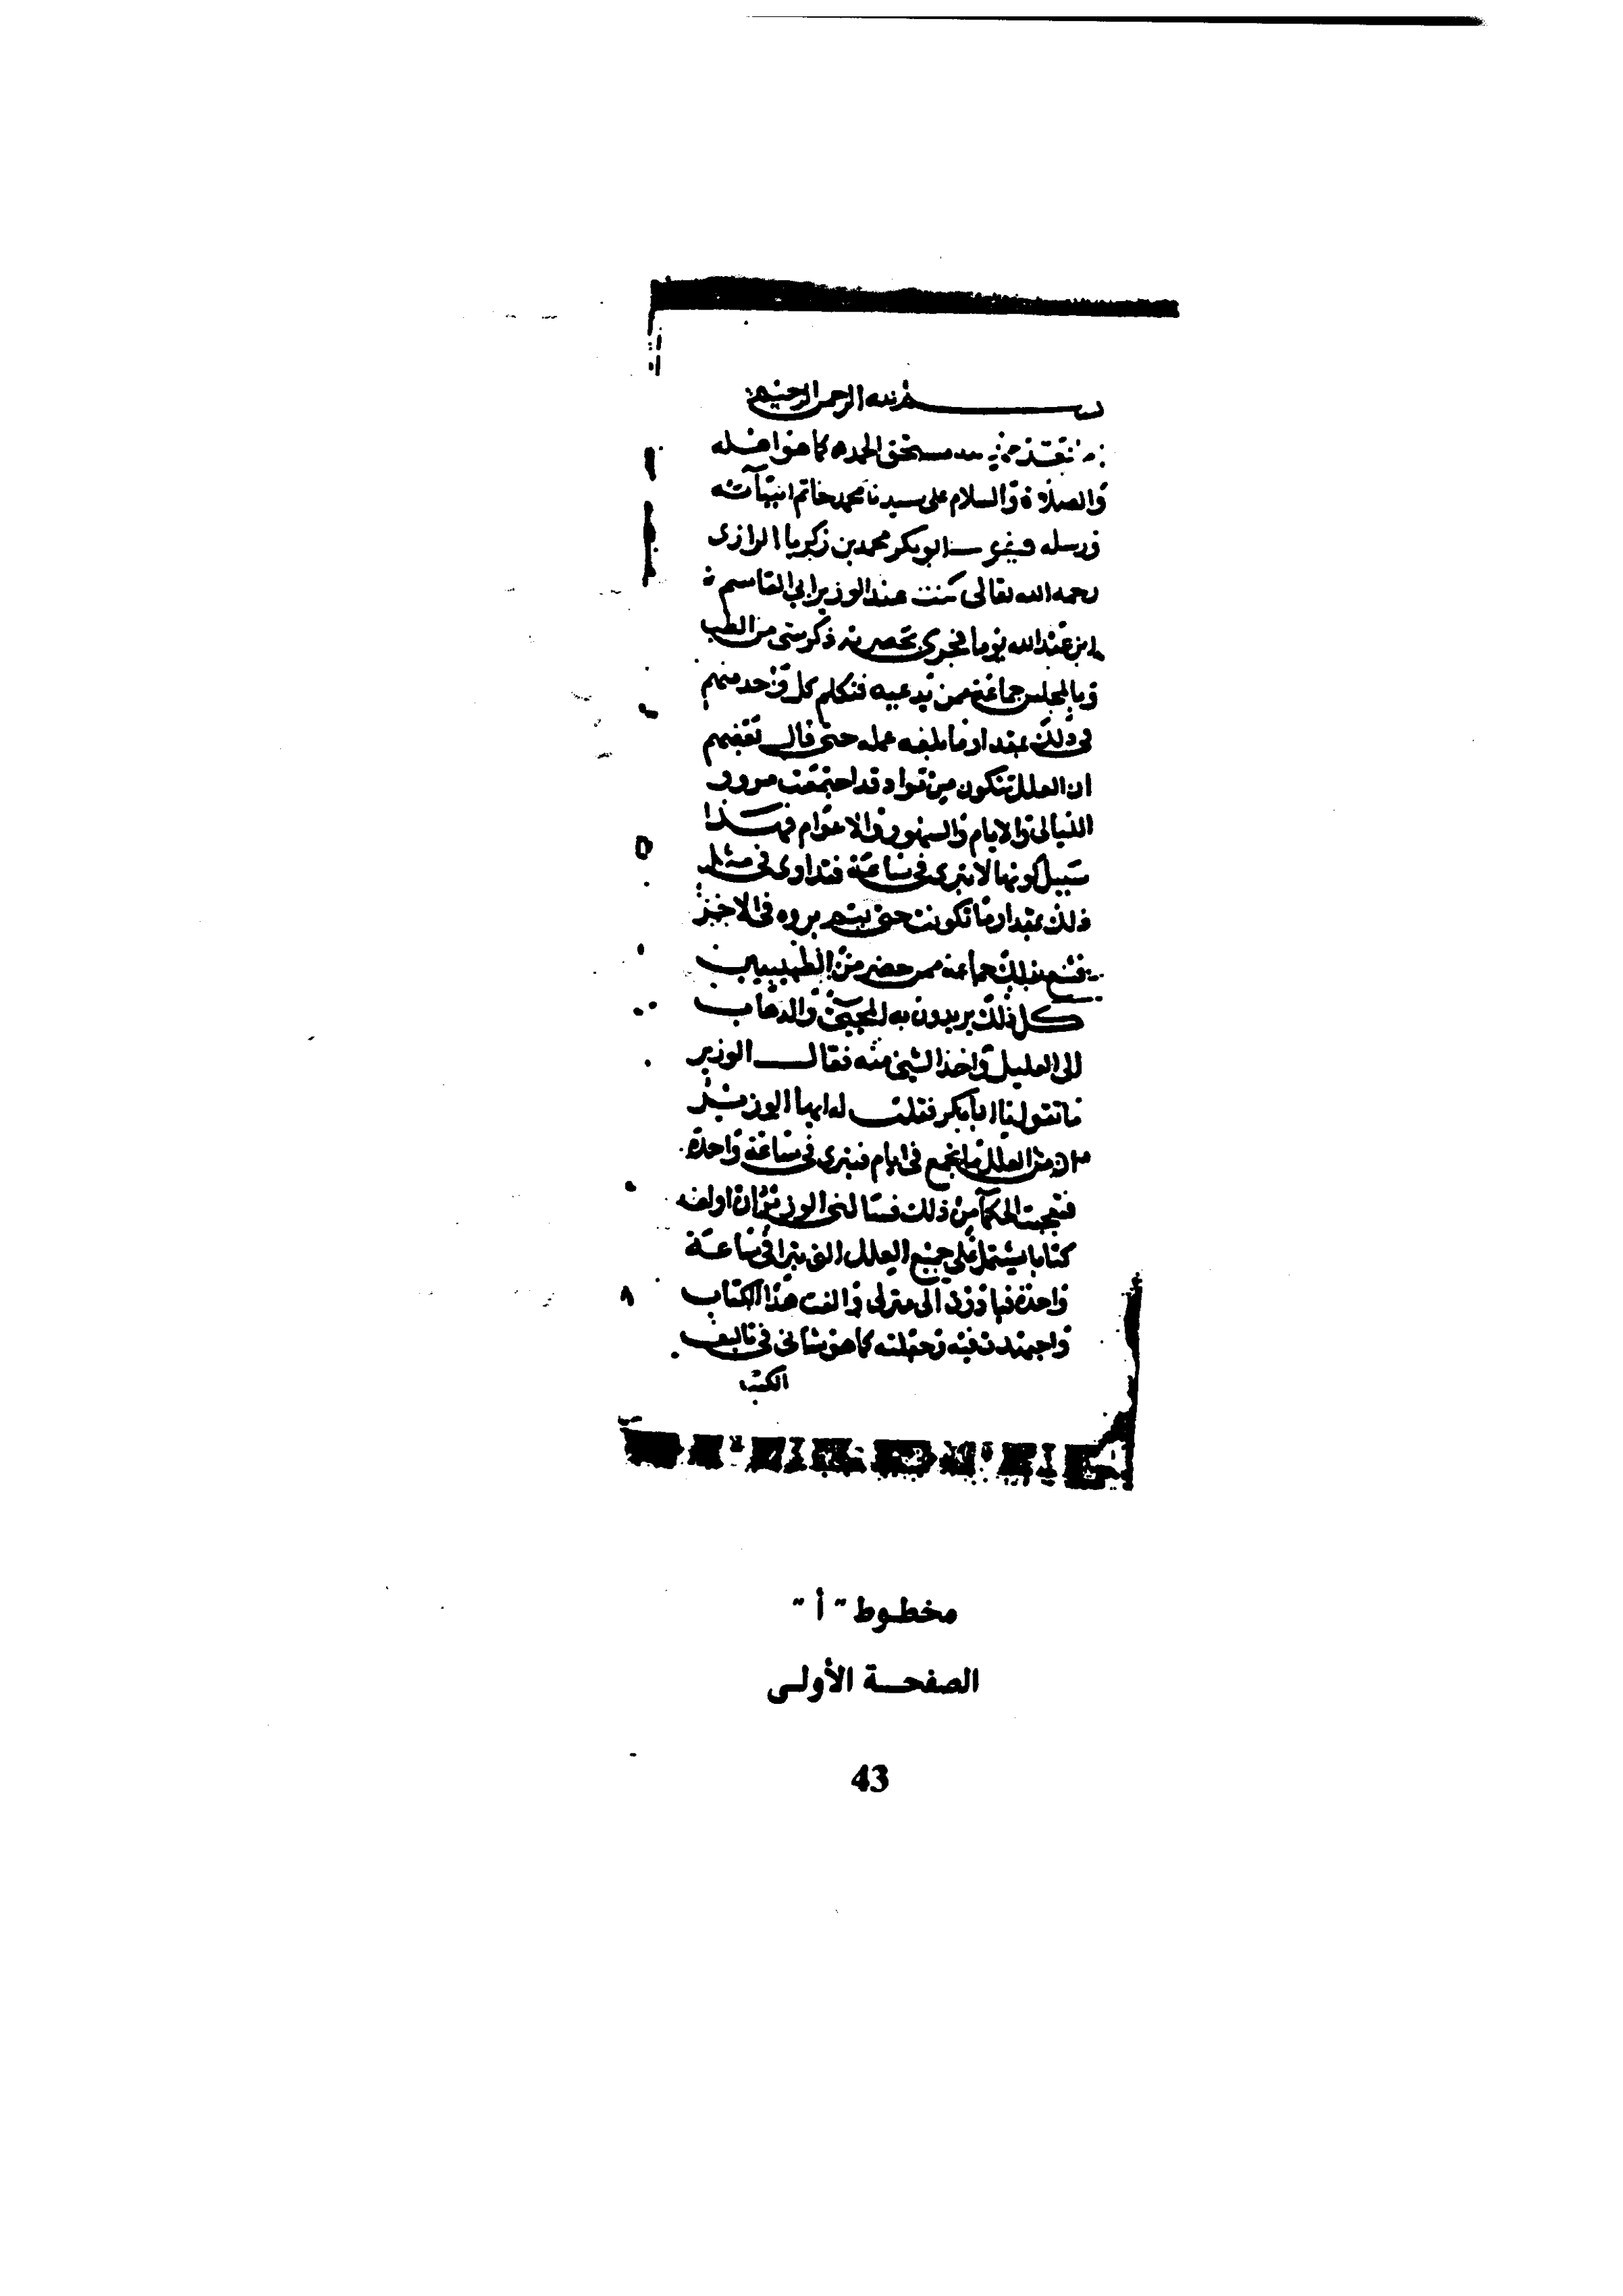 بسم الله الرحمن الرحيم
حمد مستحق الحمد كما هو اهله
والصلاة والسلام على سيدنا محمد خاتم انبيآئه
ورسله ابو بكر محمد بن زكريا الرازى
رحمه الله تعالى كنت عند الوزير ابى القاسم
ابن عبد الله يوما فجرى بحضرته ذكر شى من الطب
وبالمجلس جماعة ممن يدعيه فتكلم كل واحد منهم
فى ذلك بمقدار ما بلغه علمه حتى قال بعضهم
ان العلل تتكون من مواد قد اجتمعت مرور
الليالى والايام والشهور والاعوام فهذا
سبيل كونها لا تبرى فى ساعة فى مثل
ذلك بمقدار ما تكونت حتى يتم بروه
بذلك جماعة ممن حضر من
كل ذلك يريدون به المجيئ والذهاب
الى العليل واخذ الشئ منه فقال الوزير
ما تقول يا ابا بكر فقلت له ايها الوزير
ان من العلل ما يجمع فى ايام فيبرى فى ساعة واحدة
فتعجبت الحكمآ من ذلك فسالنى الوزير ان اولف
كتابا يشتمل على جميع العلل التى تبرا فى ساعة
واحدة الى منزلى والفت هذا الكتاب
واجتهدت فيه وجعلته كما هو شانى فى تاليف
الكتب
مخطوط "أ"
الصفحة الأولى
43